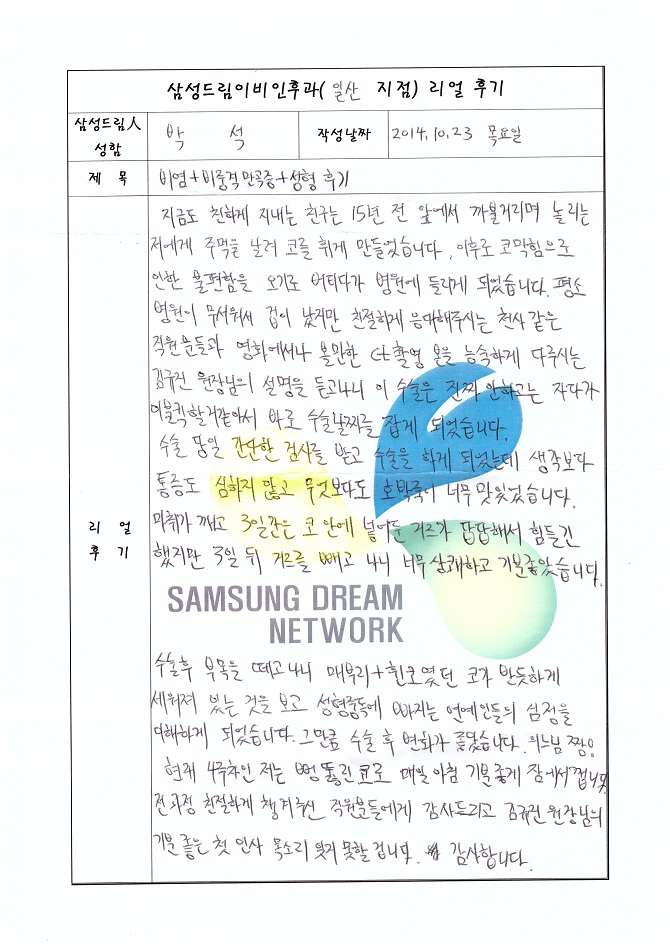 삼성드림이비인후과( 일산 지점) 리얼 후기
삼성드림人 성함
박 석
작성날짜
2014. 10. 23 목요일
제 목
비염+비중격만곡증+성형 후기
리 얼 후 기
지금도 친하게 지내는 친구는 15년 전 앞에서 까불거리며 놀리는
저에게 주먹을 날려 코를 휘게 만들었습니다. 이후로 코막힘으로
인한 불편함을 오기로 버티다가 병원에 들리게 되었습니다. 평소
병원이 무서워서 겁이 났지만 친절하게 응대해주시는 천사 같은
직원분들과 영화에서나 볼만한 ct촬영 본을 능숙하게 다루시는
김규진 원장님의 설명을 듣고나니 이 수술은 진짜 안하고는 자다가
이불킥할거같아서 바로 수술날짜를 잡게 되었습니다.
수술 당일 간단한 검사를 받고 수술을 하게 되었는데 생각보다
통증도 심하지 않고 무엇보다도 호박죽이 너무 맛있었습니다.
마취가 깨고 3일간은 코 안에 넣어둔 거즈가 답답해서 힘들긴
했지만 3일 뒤 거즈를 빼고 나니 너무 상쾌하고 기분좋았습니다.
SAMSUNG DREAM
NETWORK
수술후 부목을 떼고나니 매부리+휜코였던 코가 반듯하게
세워져 있는 것을 보고 성형중독에 빠지는 연예인들의 심정을
이해하게 되었습니다. 그만큼 수술 후 변화가 좋았습니다. 의느님 짱!
현재 4주차인 저는 뻥 뚫린 코로 매일 아침 기분좋게 잠에서 깹니다.
전과정 친절하게 챙겨주신 직원분들에게 감사드리고 김규진 원장님의
기분 좋은 첫 인사 목소리 잊지 못할 겁니다. 감사합니다.